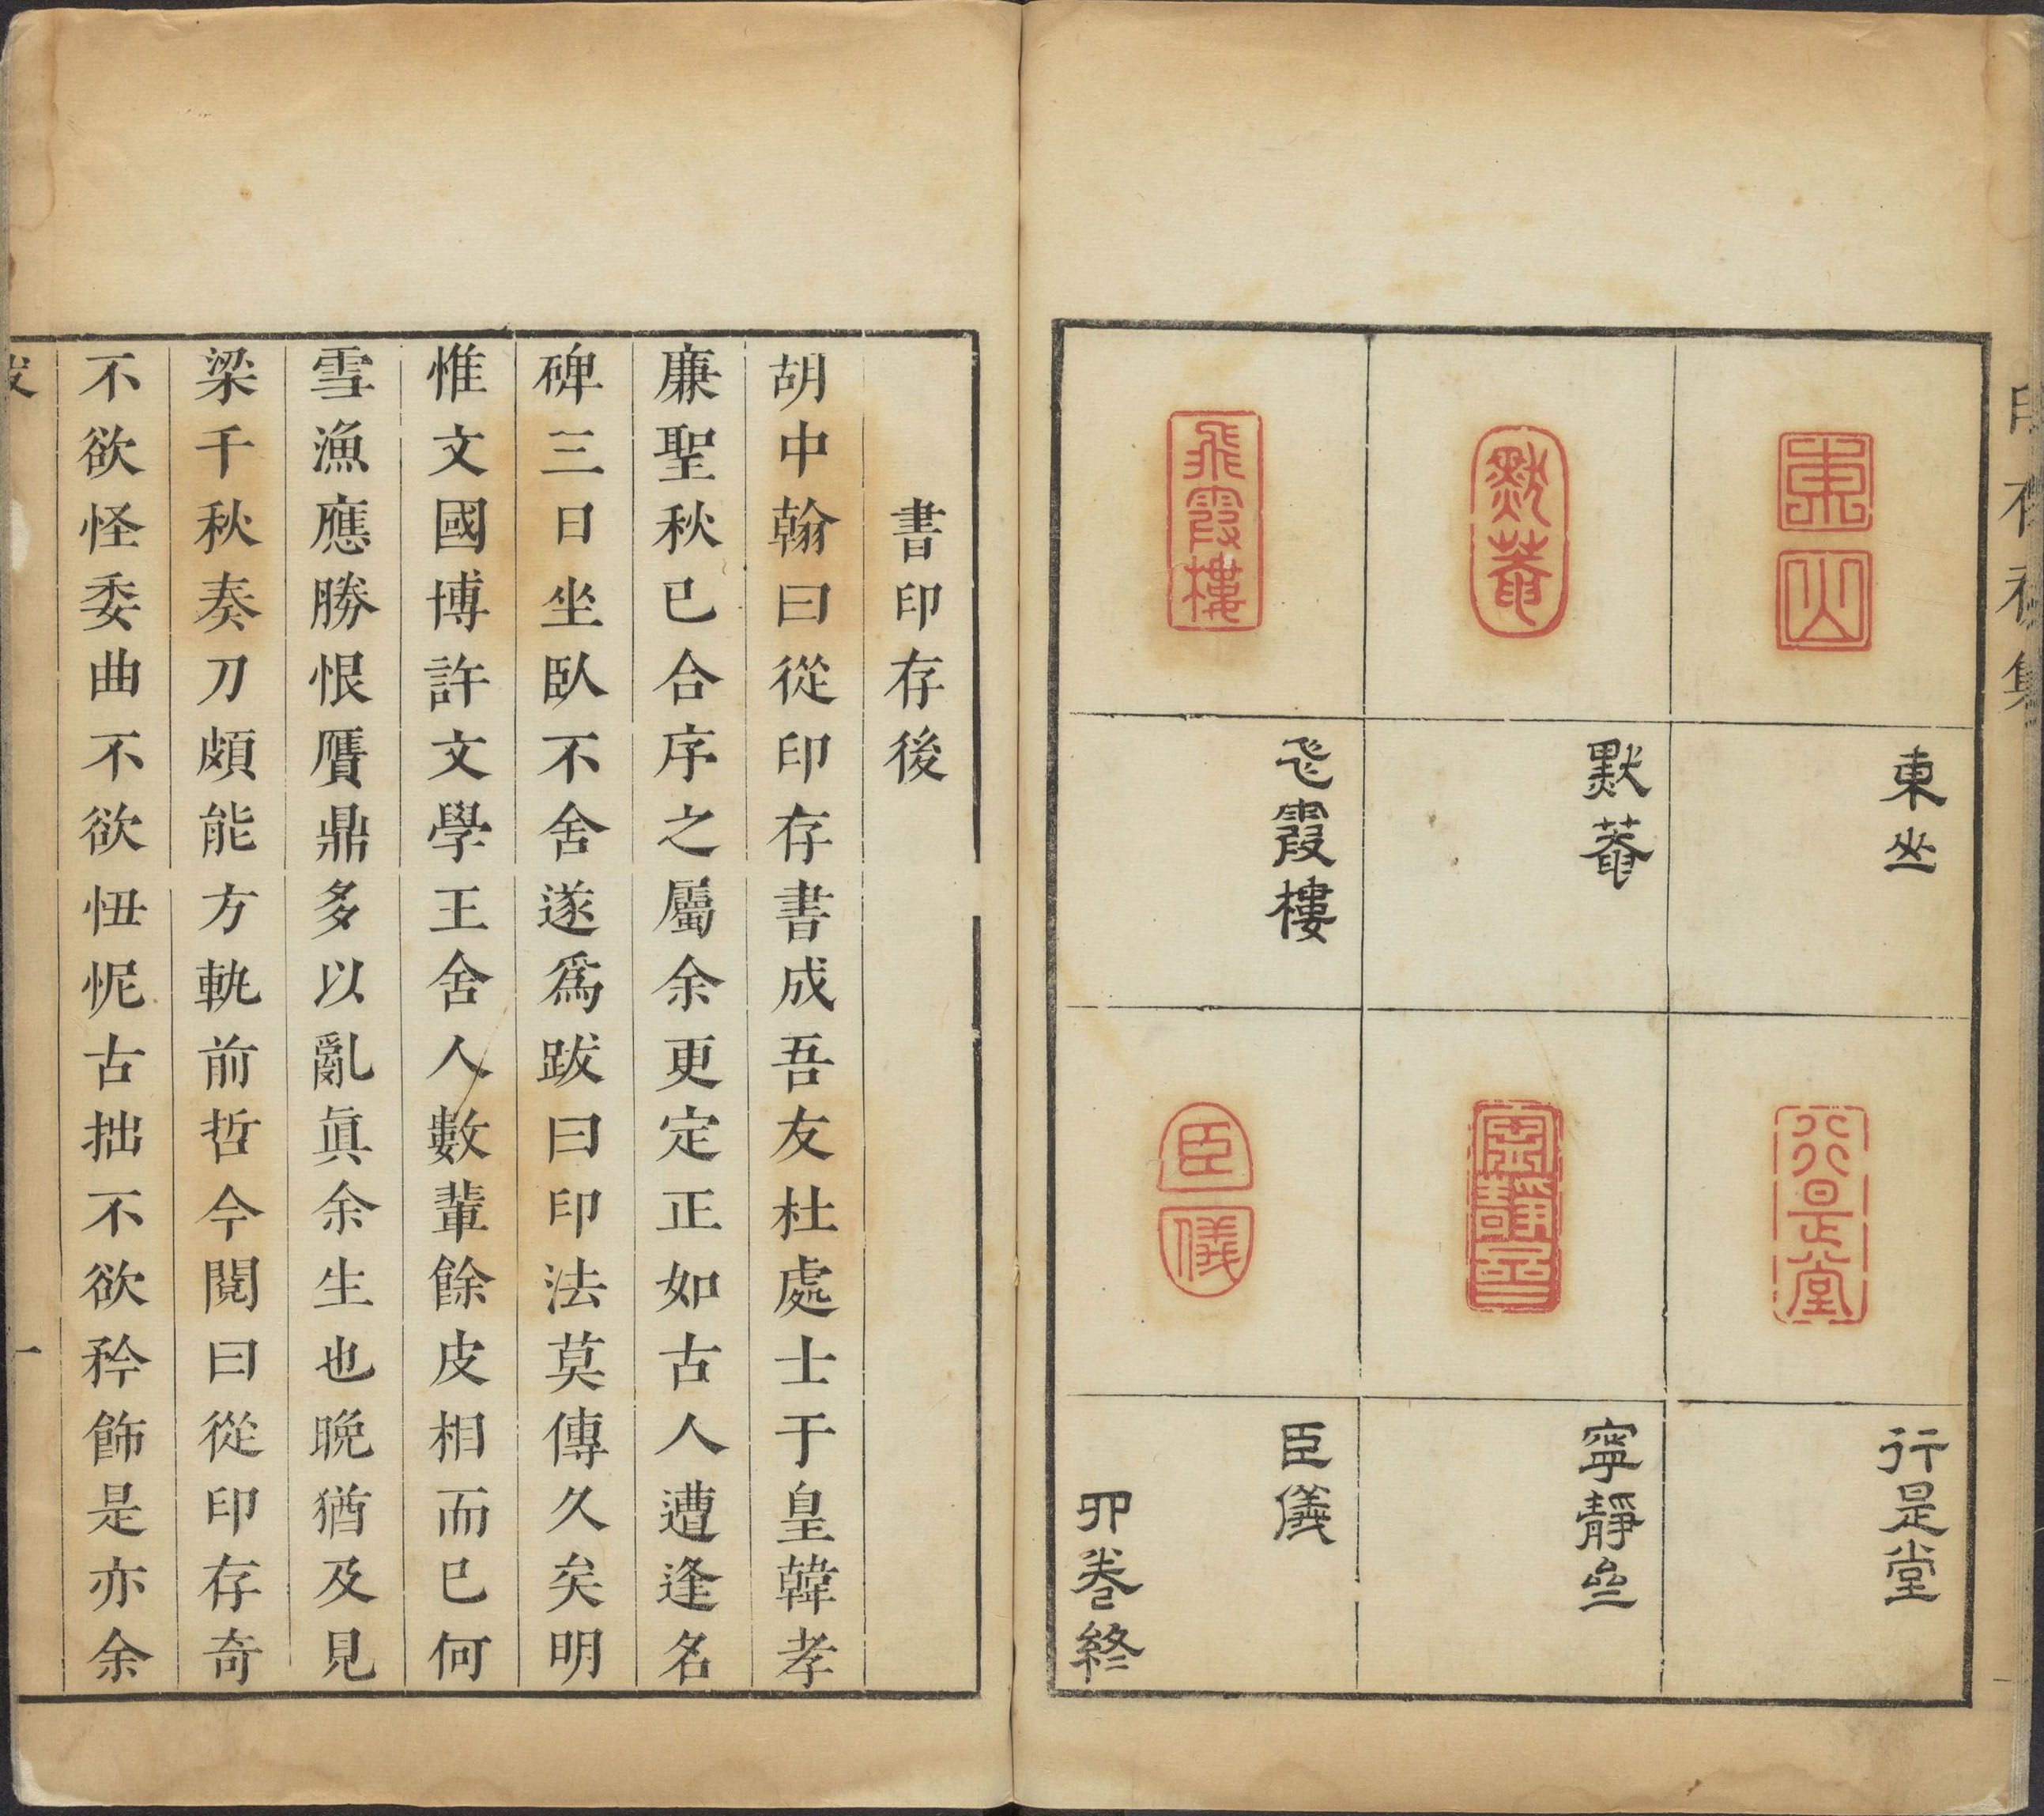 印存初集
東山
東山
默菴
默菴
飛霞樓
飛霞樓
行是堂
行是堂
寧靜
寧靜
臣儀
臣儀
卯卷終
書印存後
胡中翰曰從印存書成吾友杜處士于皇韓孝
廉聖秋已合序之屬余更定正如古人遭逢名
碑三日坐臥不舍遂爲跋曰印法莫傳久矣明
惟文國博許文學王舍人數輩餘皮相而已何
雪漁應勝恨贗鼎多以亂眞余生也晚猶及見
梁千秋奏刀頗能方軌前哲今閱曰從印存奇
不欲怪委曲不欲忸怩古拙不欲矜飾是亦余
跋
一